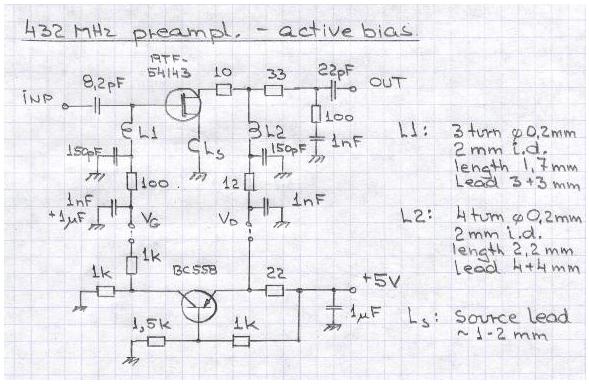 432 MHz preampl. - active bias
ATF-
54143
8,2pF
10
33
22pF
OUT
INP
L1
Ls
L2
100
1nF
150pF
150pF
100
12
1nF
+1µF
VG
VD
1nF
1k
BC558
1k
22
+5V
1µF
1,5k
1k
L1: 3 turn φ0,2mm
2mm i.d.
length 1,7mm
Lead 3+3 mm
L2: 4 turn φ0,2mm
2mm i.d.
length 2,2 mm
Lead 4+4 mm
Ls: Source lead
~ 1-2 mm